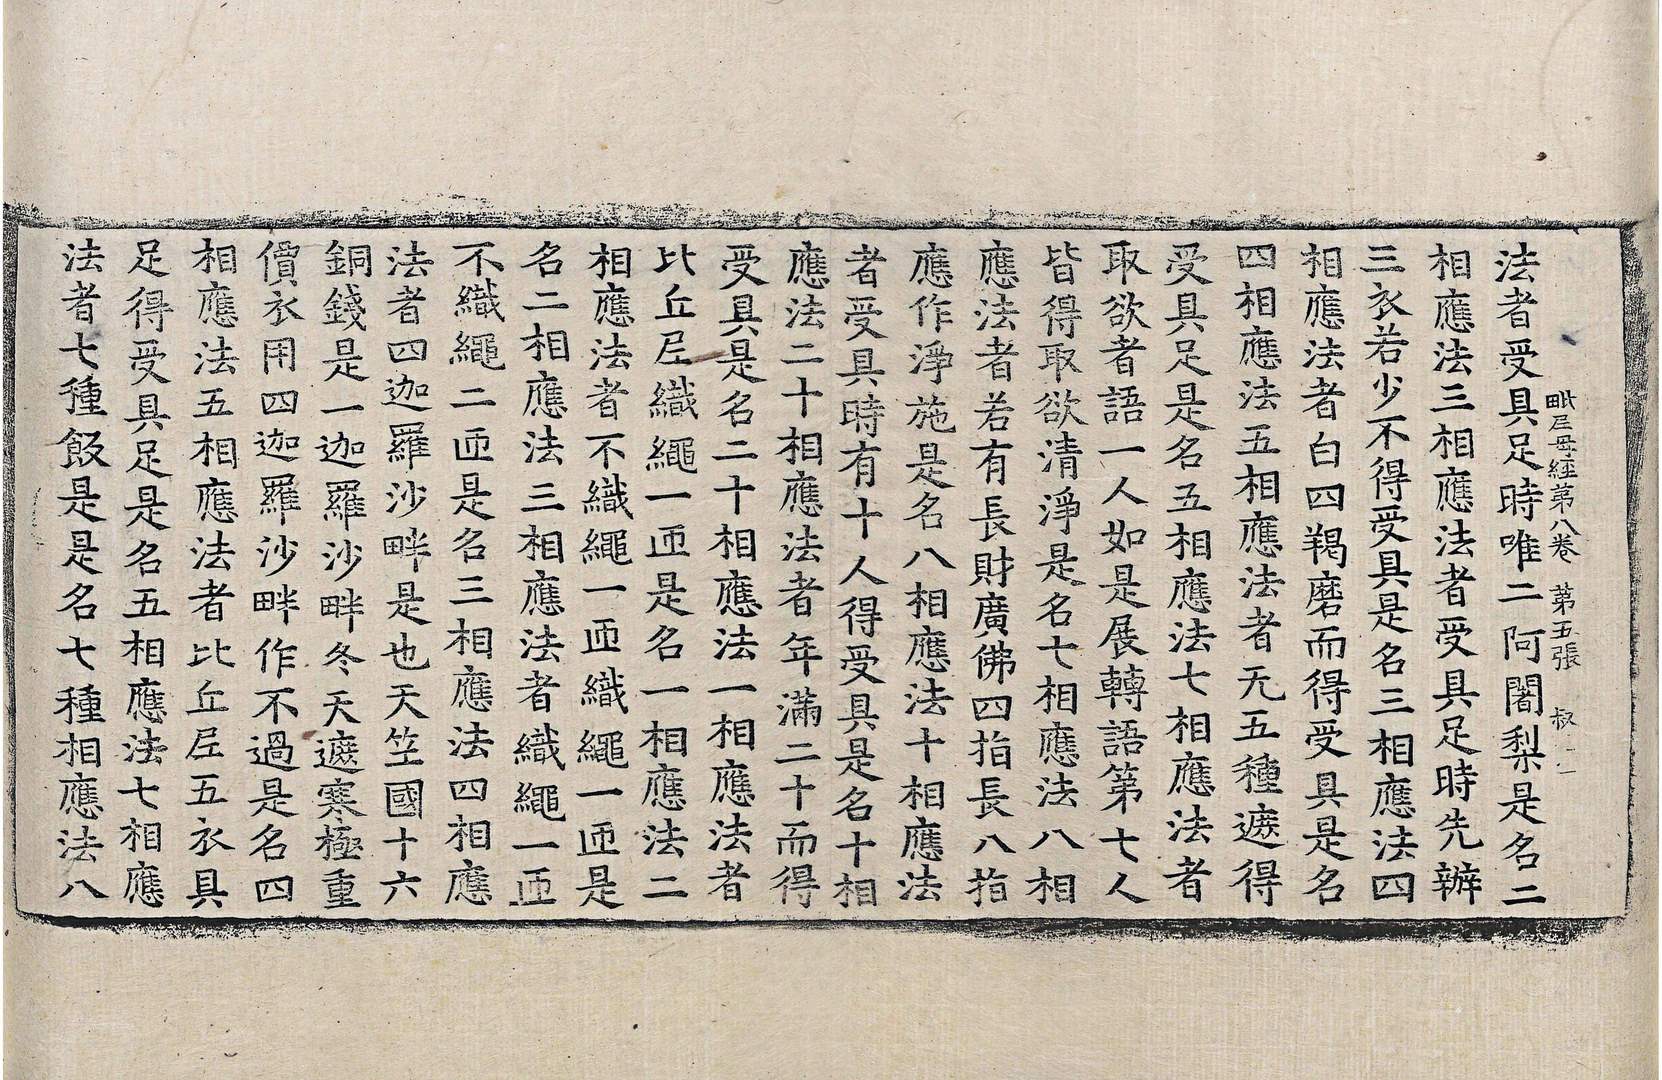 毗尼母經第八卷 第五張 叔
法者受具足時唯二阿闍梨是名二
相應法三相應法者受具足時先辦
三衣若少不得受具是名三相應法四
相應法者白四羯磨而得受具是名
四相應法五相應法者无五種遮得
受具足是名五相應法七相應法者
取欲者語一人如是展轉語第七人
皆得取欲清淨是名七相應法八相
應法者若有長財廣佛四指長八指
應作淨施是名八相應法十相應法
者受具時有十人得受具是名十相
應法二十相應法者年滿二十而得
受具是名二十相應法一相應法者
比丘尼織繩一匝是名一相應法二
相應法者不織繩一匝織繩一匝是
名二相應法三相應法者織繩一匝
不織繩二匝是名三相應法四相應
法者四迦羅沙畔是也天竺國十六
銅錢是一迦羅沙畔冬天遮寒極重
價衣用四迦羅沙畔作不過是名四
相應法五相應法者比丘尼五衣具
足得受具足是名五相應法七相應
法者七種飯是是名七種相應法八